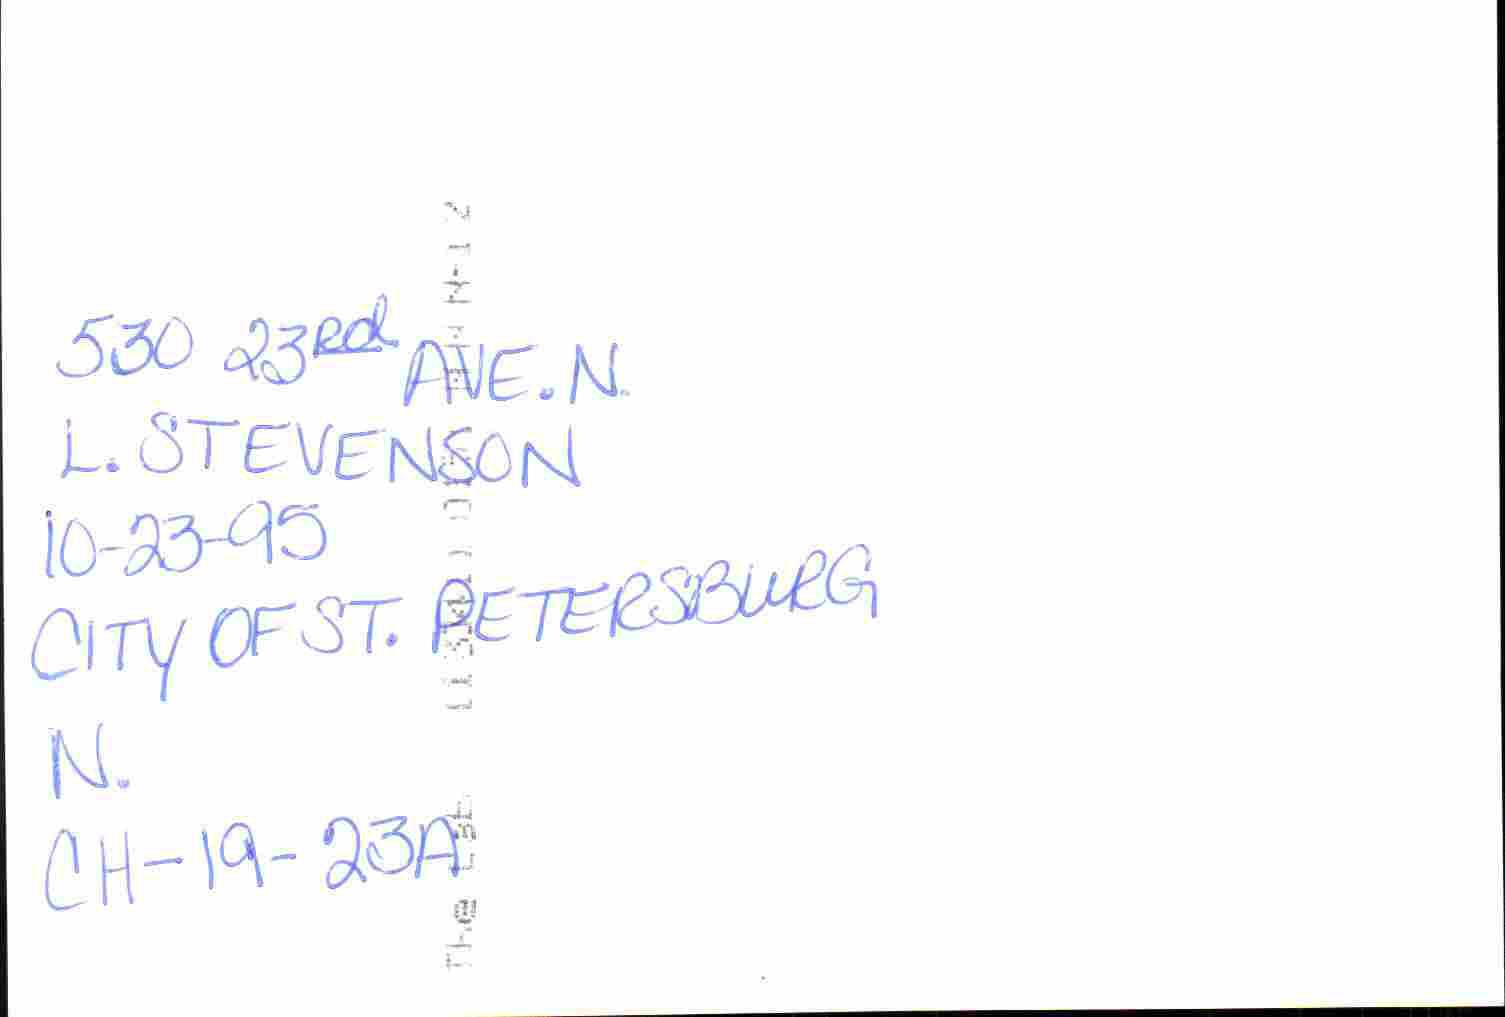 530 23Rd AVE. N.
L. STEVENSON
10-23-95
CITY OF ST. PETERSBURG
N.
CH-19-23A